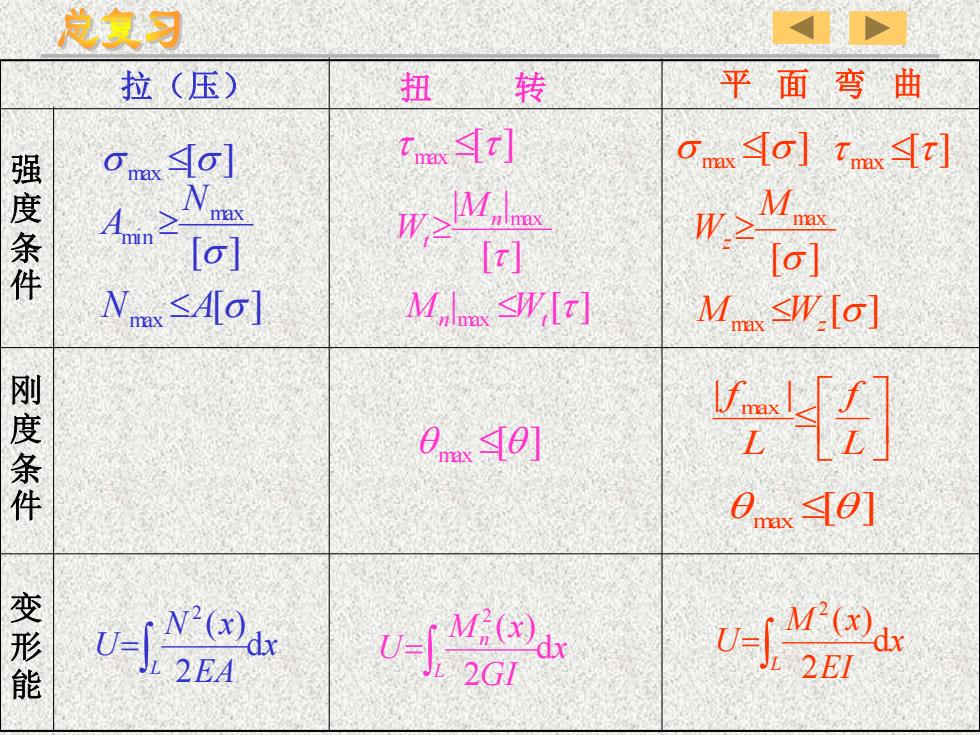 总复习
拉（压） 扭 转 平 面 弯 曲
强度条件
σmax≤[σ] τmax≤[τ] σmax≤[σ] τmax≤[τ]
Amin≥Nmax/[σ] Wt≥|Mn|max/[τ] Wz≥Mmax/[σ]
Nmax≤A[σ] Mn|max≤Wt[τ] Mmax≤Wz[σ]
刚度条件
θmax≤[θ] |fmax|/L≤[f/L]
θmax≤[θ]
变形能
U=∫L N²(x)/2EA dx U=∫L Mn²(x)/2GI dx U=∫L M²(x)/2EI dx